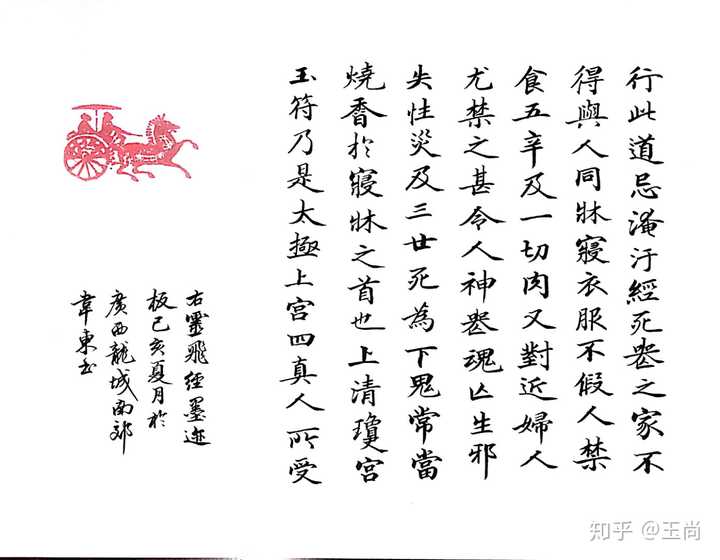 行此道忌淹汙經死喪之家不
得與人同牀寢衣服不假人禁
食五辛及一切肉又對近婦人
尤禁之甚令人神喪魂亡生邪
失性災及三世死為下鬼常當
燒香於寢牀之首也上清瓊宮
玉符乃是太極上宮四真人所受
右靈飛經墨迹
板己亥夏月於
廣西龍城南郊
韋東書
知乎 @玉尚